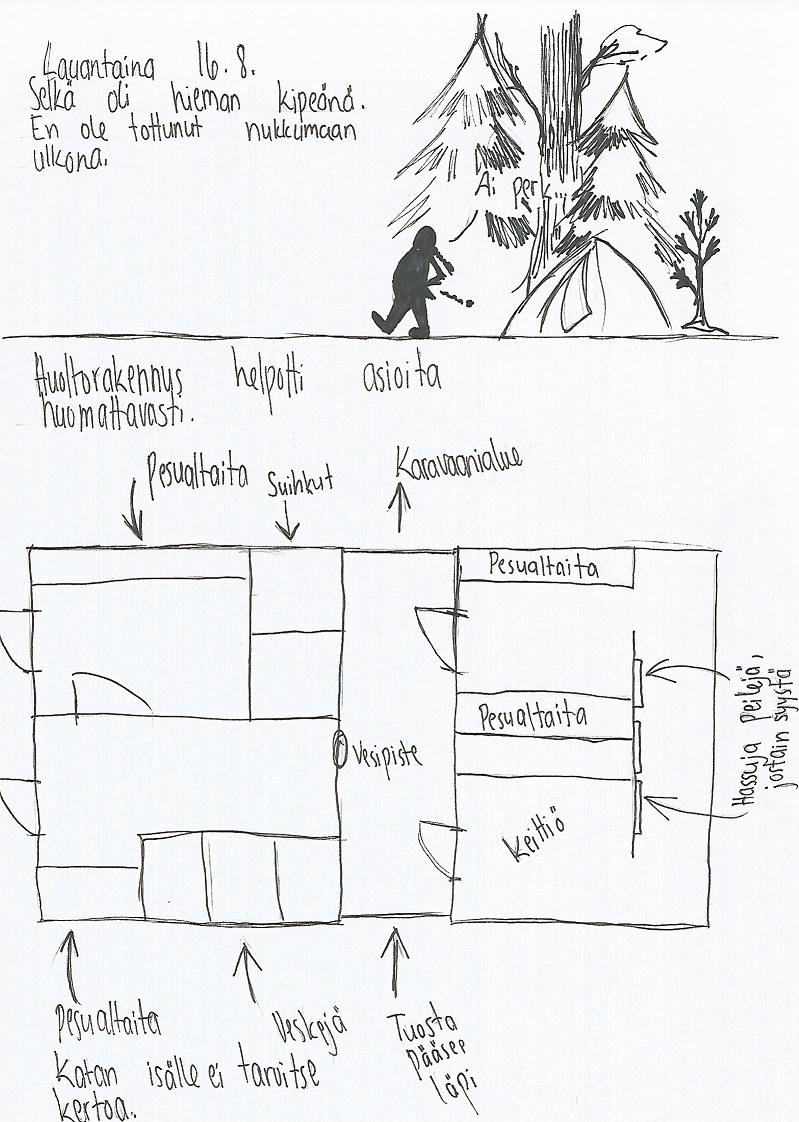 Lauantaina 16.8.
Selkä oli hieman kipeänä.
En ole tottunut nukkumaan
ulkona.
Ai perk...
Huoltorakennus helpotti asioita
huomattavasti.
Pesualtaita
Suihkut
Karavaanialue
Pesualtaita
Pesualtaita
Vesipiste
Keittiö
Hassuja peilejä,
jostain syystä
Pesualtaita
Veskejä
Tuosta
pääsee
läpi
Katan isälle ei tarvitse
kertoa.